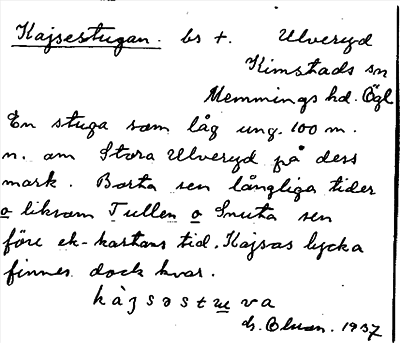 Kajsestugan. bs +. Ulveryd
Kimstads sn
Memmings hd. Ögl
En stuga som låg ung. 100 m.
n. om Stora Ulveryd på dess
mark. Borta sen långliga tider
o liksom Tullen o Snuta sen
före ek-kartans tid. Kajsas lycka
finnes dock kvar.
1937